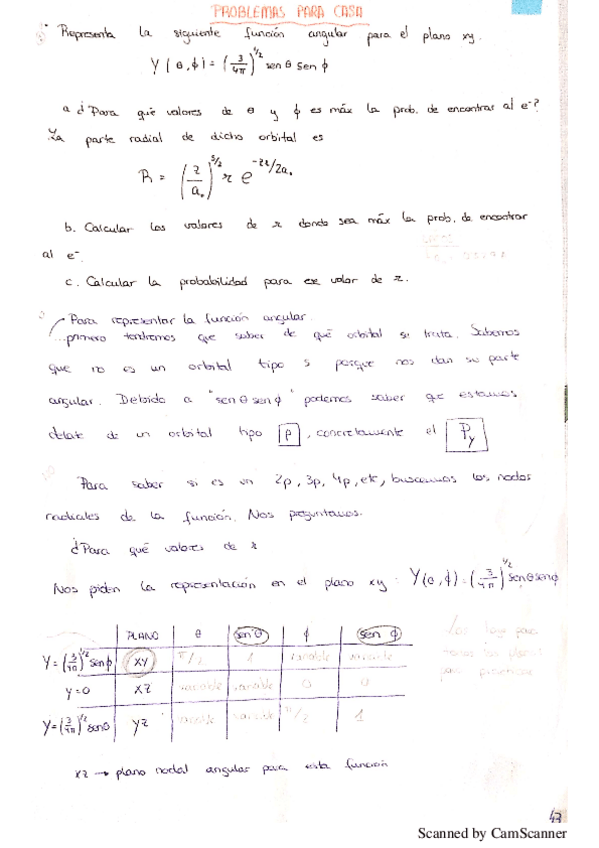 PROBLEMAS PARA CASA
Representa la siguiente función angular para el plano xy.
Y (θ,ϕ) = (3/4π)^1/2 sen θ sen ϕ
a ¿Para qué valores de θ y ϕ es máx la prob. de encontrar al e⁻?
La parte radial de dicho orbital es
R = (z/a₀)^5/2 r e^-zr/2a₀
b. Calcular los valores de r donde sea máx la prob. de encontrar
al e⁻.
c. Calcular la probabilidad para ese valor de r.
Para representar la función angular
primero tendremos que saber de qué orbital se trata. Sabemos
que no es un orbital tipo s porque nos dan su parte
angular. Debido a "sen θ sen ϕ" podemos saber que estamos
delate de un orbital tipo p, concretamente el Py
Para saber si es un 2p, 3p, 4p, etc, buscamos los nodos
radiales de la función. Nos preguntamos.
¿Para qué valores de r
Nos piden la representación en el plano xy : Y(θ,ϕ) = (3/4π)^1/2 senθ senϕ
PLANO θ sen θ ϕ sen ϕ
Y = (3/4π)^1/2 senϕ XY π/2 1 variable variable
y = 0 XZ variable variable 0 0
Y = (3/4π)^1/2 senθ YZ variable variable π/2 1
para
xz → plano nodal angular para esta función
43
Scanned by CamScanner